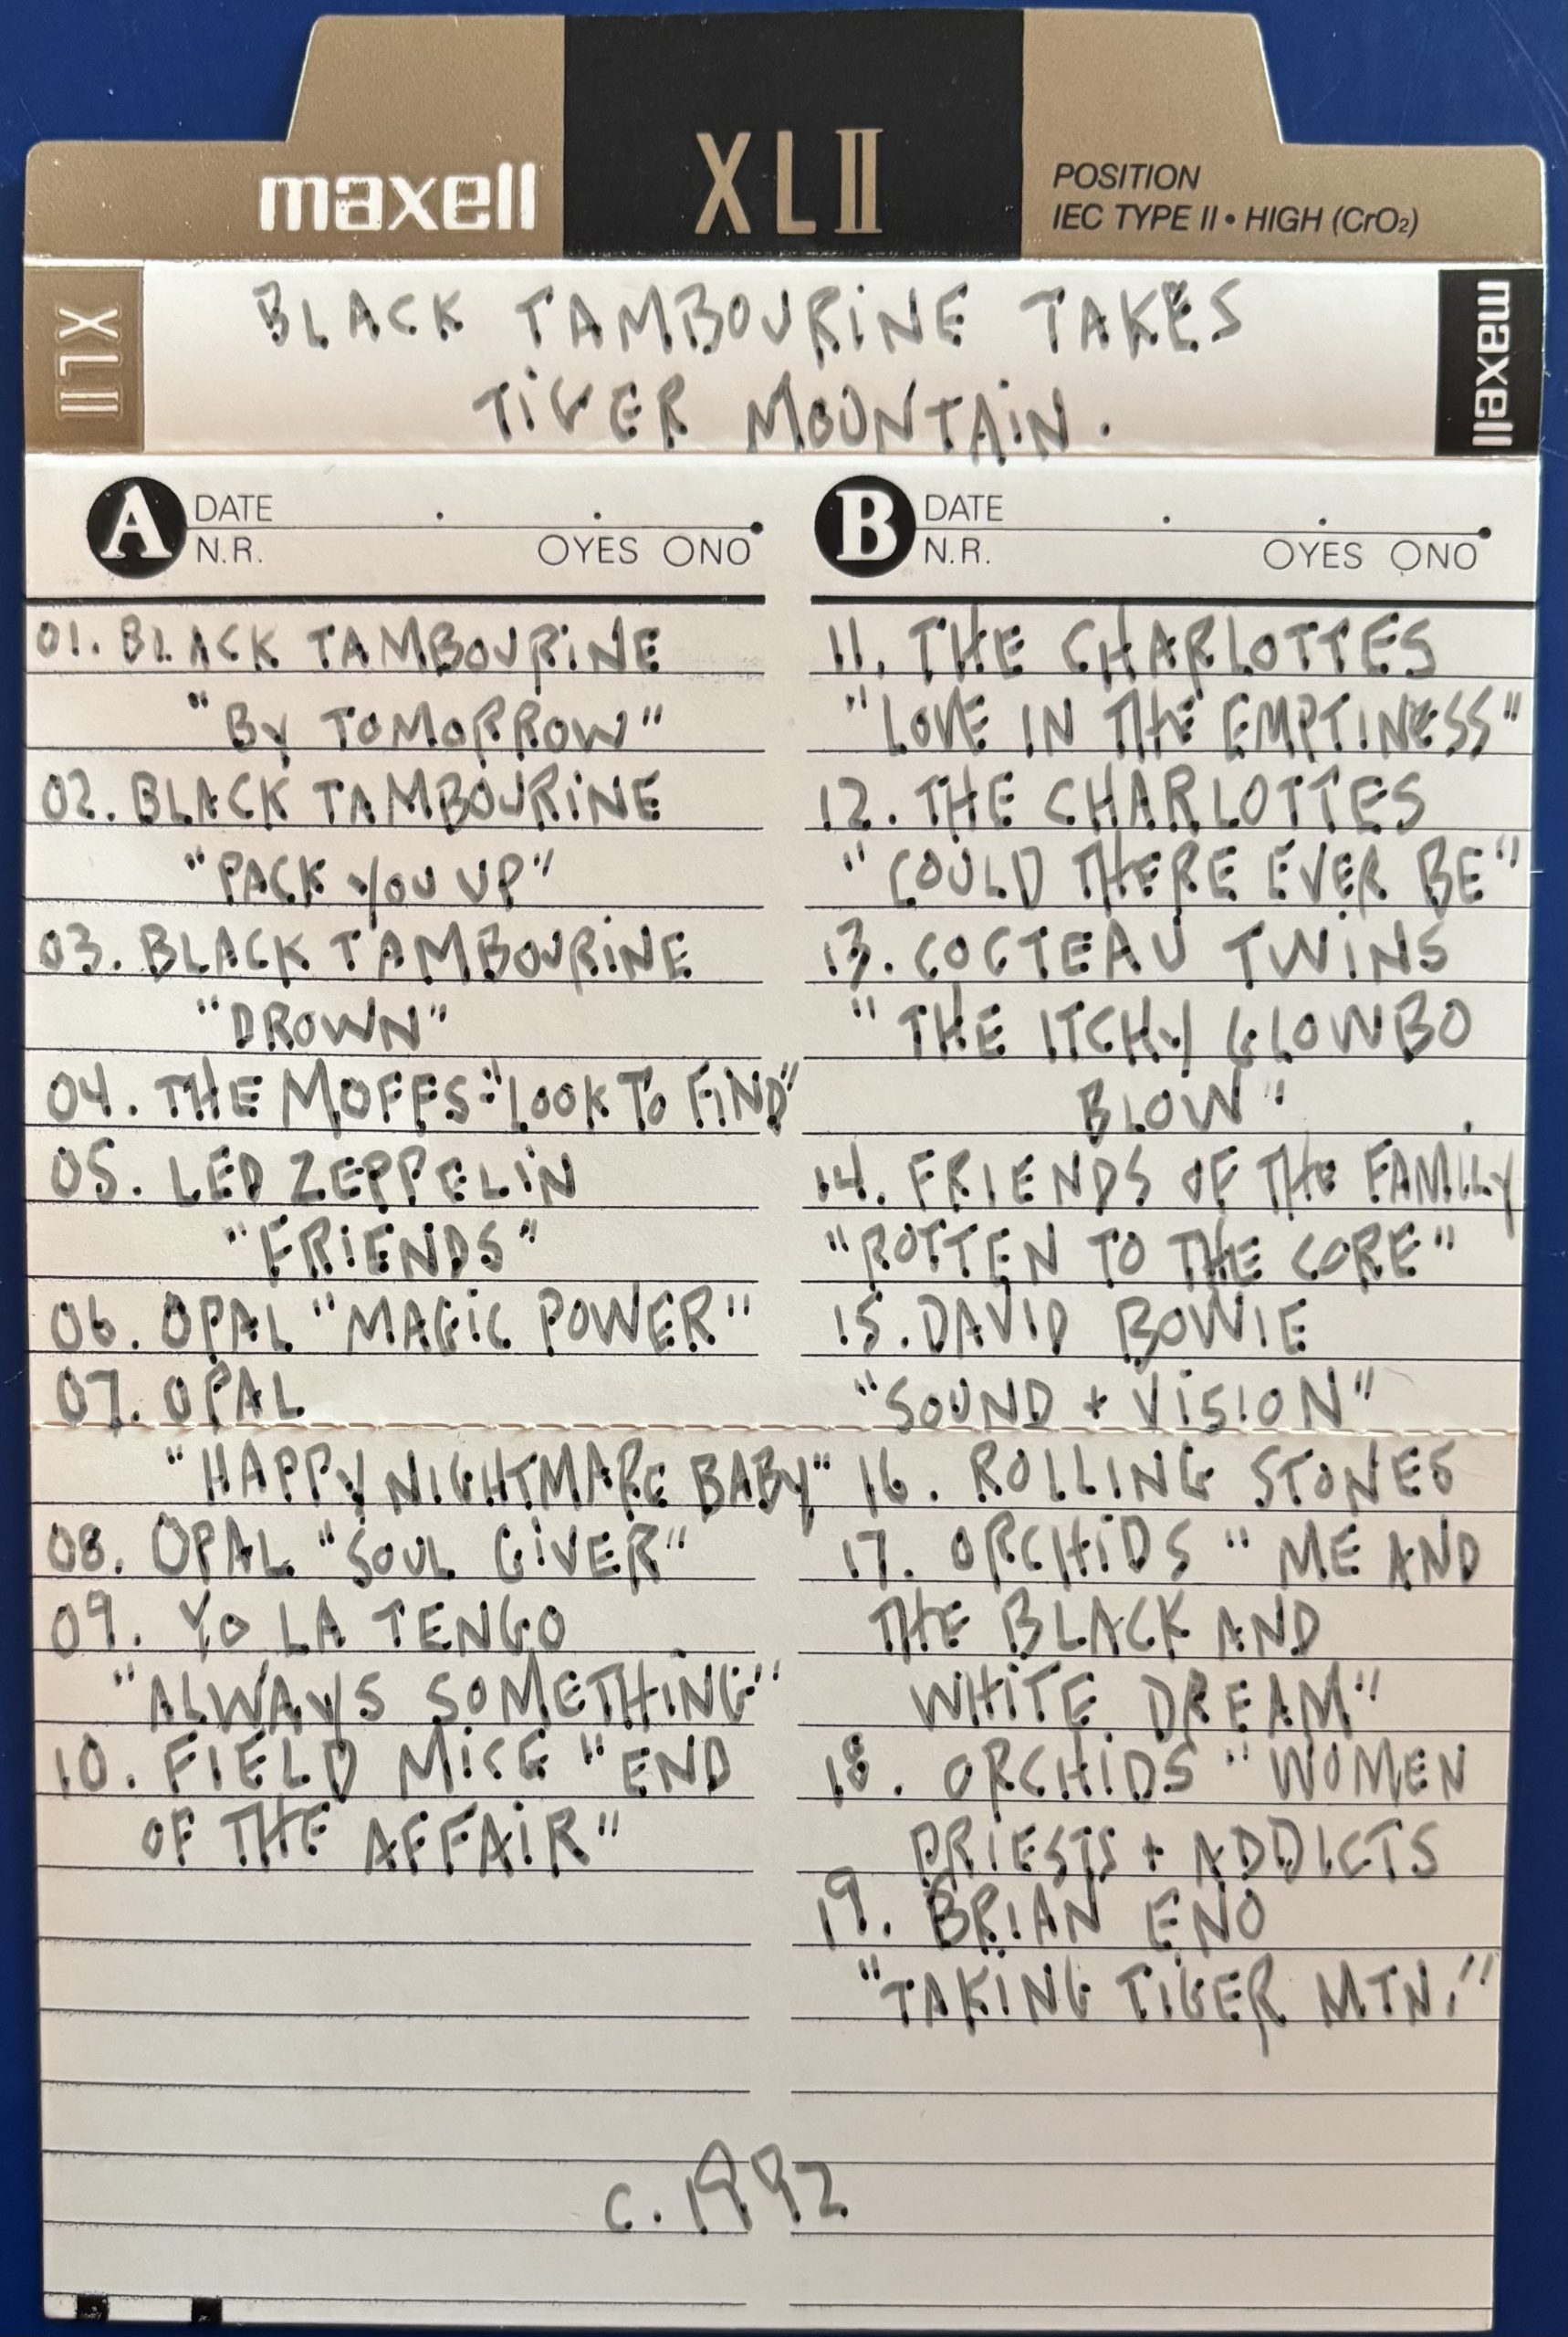 maxell XLII POSITION
IEC TYPE II • HIGH (CrO₂)
XLII
BLACK TAMBOURINE TAKES
TIGER MOUNTAIN.
maxell
A DATE . . .
N.R. OYES ONO
01. BLACK TAMBOURINE
"BY TOMORROW"
02. BLACK TAMBOURINE
"PACK YOU UP"
03. BLACK TAMBOURINE
"DROWN"
04. THE MOFFS "LOOK TO FIND"
05. LED ZEPPELIN
"FRIENDS"
06. OPAL "MAGIC POWER"
07. OPAL
"HAPPY NIGHTMARE BABY"
08. OPAL "SOUL GIVER"
09. YO LA TENGO
"ALWAYS SOMETHING"
10. FIELD MICE "END
OF THE AFFAIR"
B DATE . . .
N.R. OYES ONO
11. THE CHARLOTTES
"LOVE IN THE EMPTINESS"
12. THE CHARLOTTES
"COULD THERE EVER BE"
13. COCTEAU TWINS
"THE ITCHY GLOWBO
BLOW"
14. FRIENDS OF THE FAMILY
"ROTTEN TO THE CORE"
15. DAVID BOWIE
"SOUND + VISION"
16. ROLLING STONES
17. ORCHIDS "ME AND
THE BLACK AND
WHITE DREAM"
18. ORCHIDS "WOMEN
PRIESTS + ADDICTS
19. BRIAN ENO
"TAKING TIGER MTN."
c. 1992